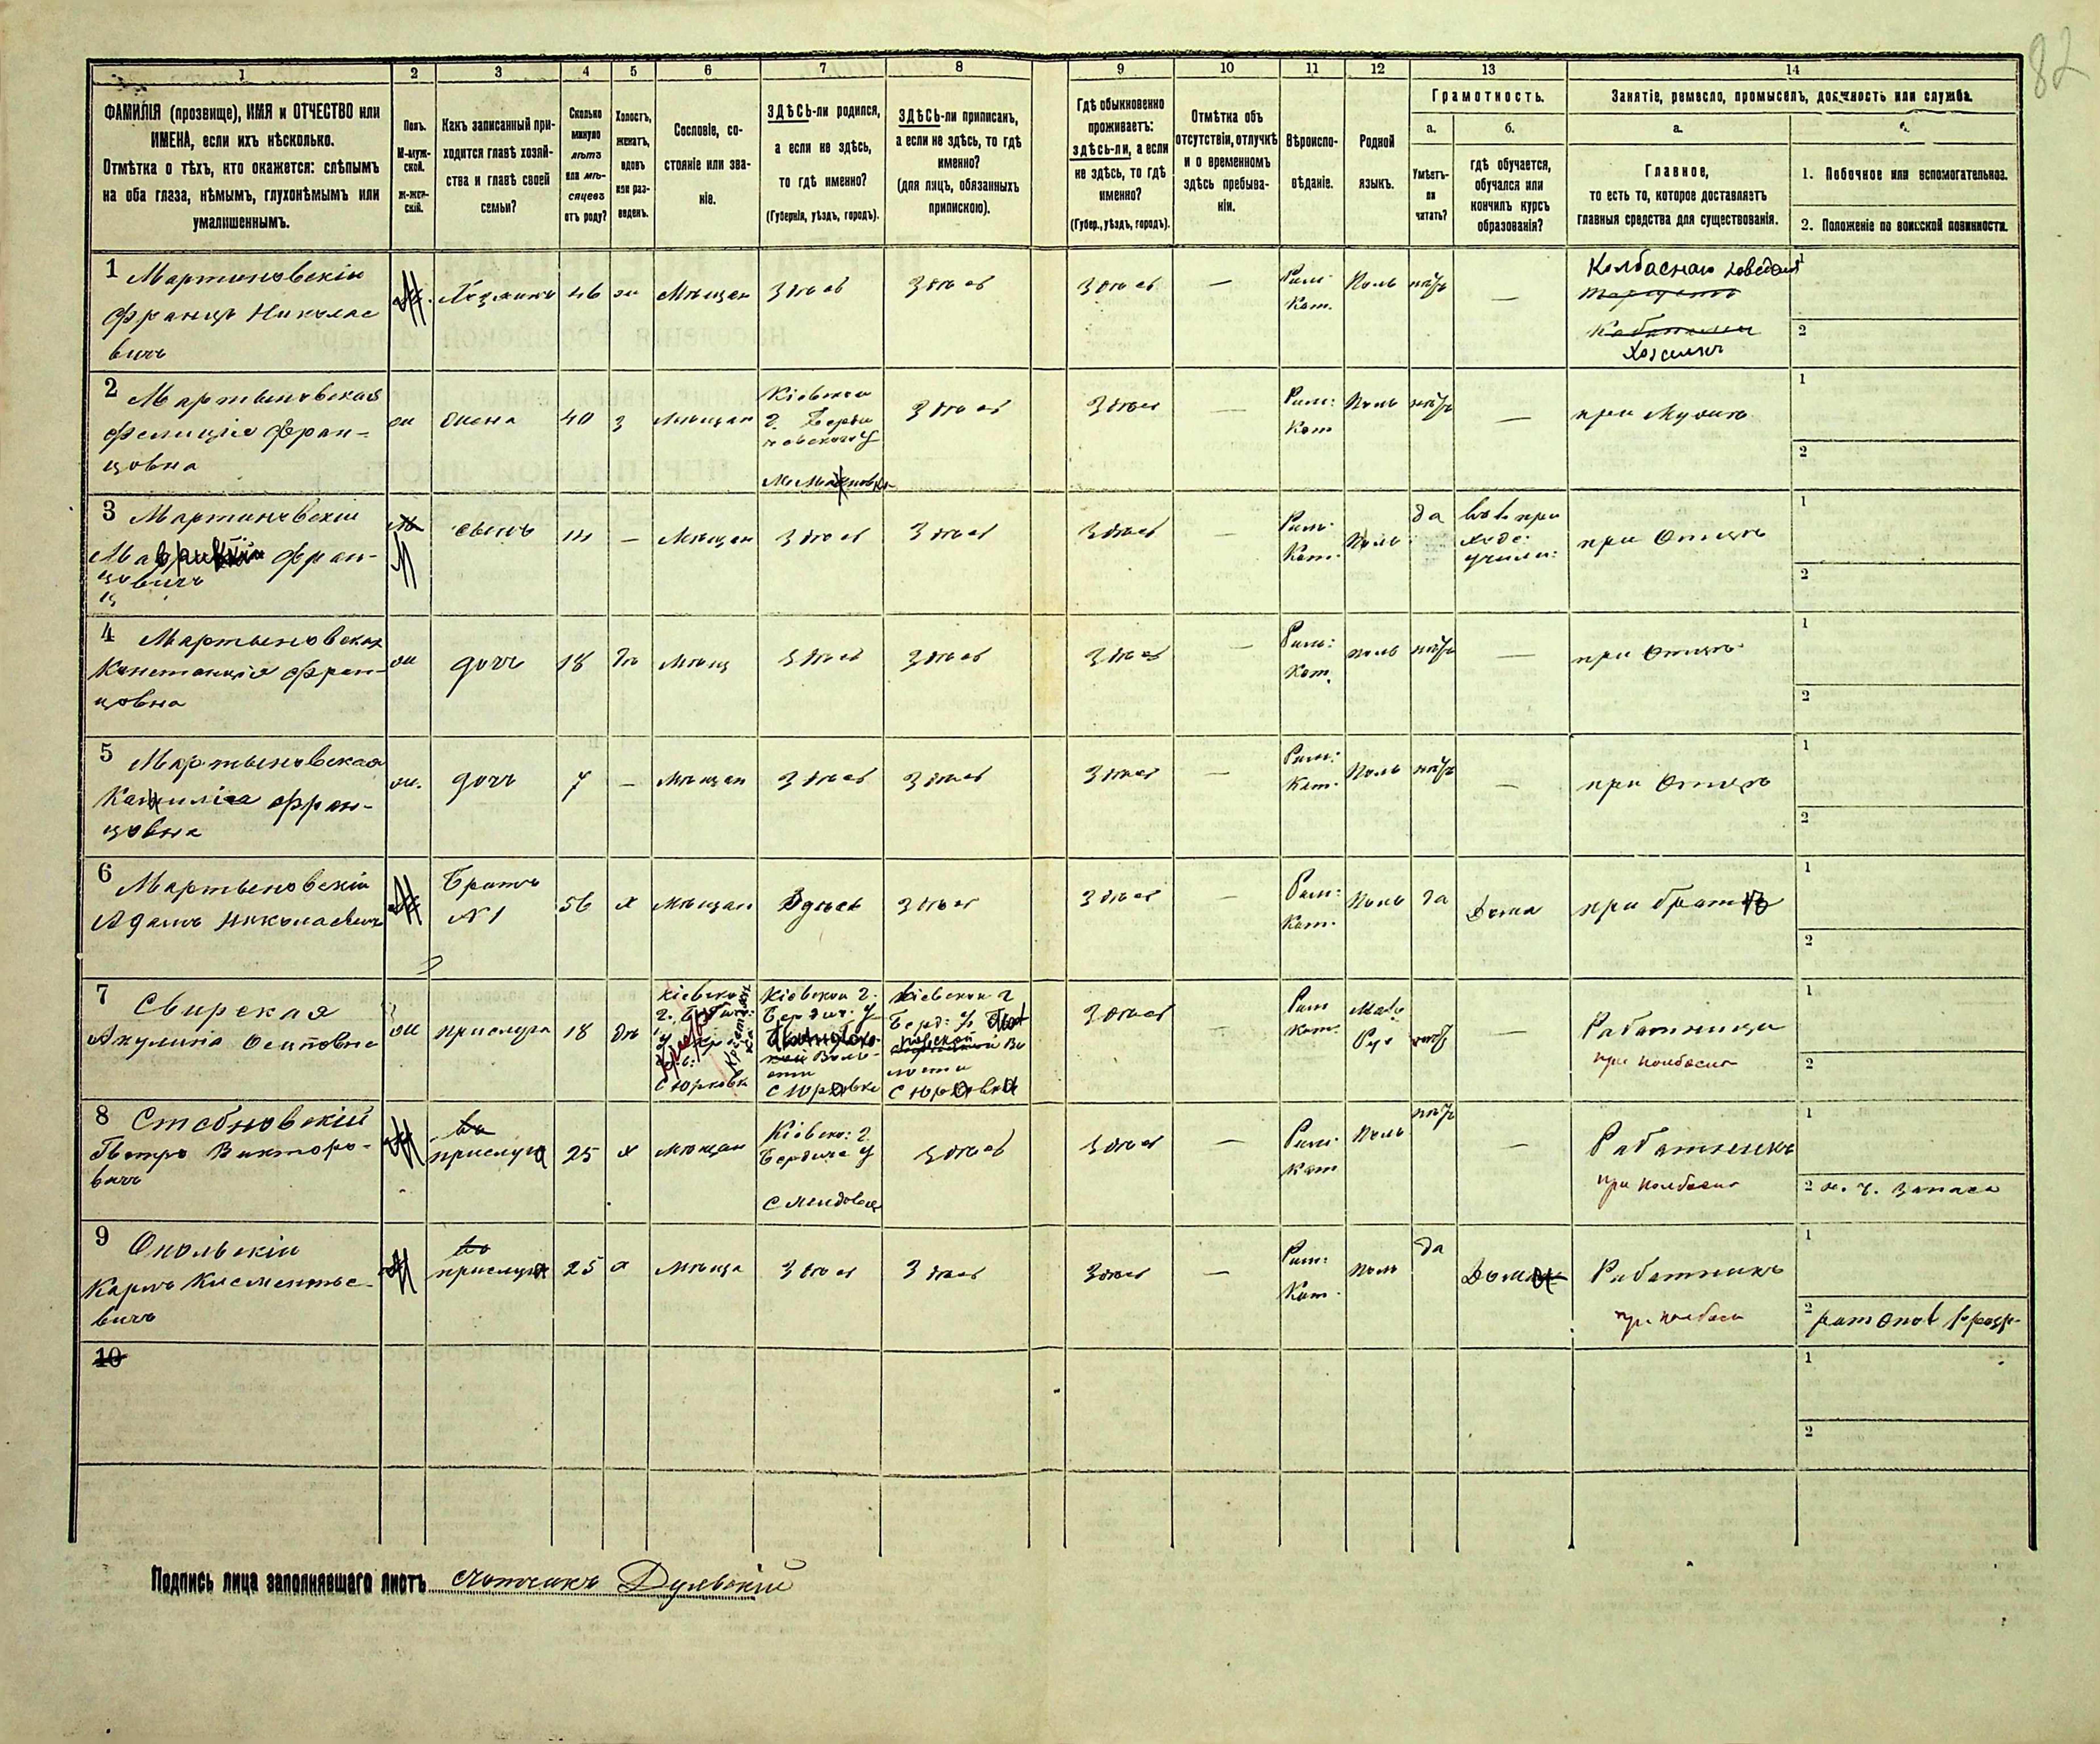 82
1
2
3
4
5
6
7
8
9
10
11
12
13
14
ФАМИЛІЯ (прозвище), ИМЯ и ОТЧЕСТВО или
ИМЕНА, если ихъ нѣсколько.
Отмѣтка о тѣхъ, кто окажется: слѣпымъ
на оба глаза, нѣмымъ, глухонѣмымъ или
умалишеннымъ.
Полъ.
М-муж-
ской.
ж-жен-
скій.
Какъ записанный при-
ходится главѣ хозяй-
ства и главѣ своей
семьи?
Сколько
минуло
лѣтъ
или мѣ-
сяцевъ
отъ роду?
Холостъ,
женатъ,
вдовъ
или раз-
веденъ.
Сословіе, со-
стояніе или зва-
ніе.
ЗДѢСЬ-ли родился,
а если не здѣсь,
то гдѣ именно?
(Губернія, уѣздъ, городъ).
ЗДѢСЬ-ли приписанъ,
а если не здѣсь, то гдѣ
именно?
(для лицъ, обязанныхъ
припискою).
Гдѣ обыкновенно
проживаетъ:
здѣсь-ли, а если
не здѣсь, то гдѣ
именно?
(Губер., уѣздъ, городъ).
Отмѣтка объ
отсутствіи, отлучкѣ
и о временномъ
здѣсь пребыва-
ніи.
Вѣроиспо-
вѣданіе.
Родной
языкъ.
Грамотность.
а.
Умѣетъ-
ли
читать?
б.
гдѣ обучается,
обучался или
кончилъ курсъ
образованія?
Занятіе, ремесло, промыселъ, должность или служба.
а.
Главное,
то есть то, которое доставляетъ
главныя средства для существованія.
б.
1. Побочное или вспомогательное.
2. Положеніе по воинской повинности.
1 Мартиновскій
Францъ Николае
вичъ
М
Хозяинъ
46
ж
Мѣщан
Здѣсь
Здѣсь
Здѣсь
—
Рим
Кат.
Поль
нѣтъ
—
Колбасная
Хозяинъ
1
2
2 Мартыновская
Фелиція Фран-
цовна
ж
жена
40
з
Мѣщан
Кіевской
г. Берди
чевскаго у
Здѣсь
Здѣсь
—
Рим:
Кат
Поль
нѣтъ
—
при Мужѣ
1
2
3 Мартиновскій
Маврикій Фран-
цовичъ
М
сынъ
14
—
Мѣщан
Здѣсь
Здѣсь
Здѣсь
Рим:
Кат.
Поль
да
при
ходс.
учили:
при Отцѣ
1
2
4 Мартыновская
Констанція Фран-
цовна
ж
дочь
18
дѣ
Мѣщ
Здѣсь
Здѣсь
Здѣсь
—
Рим:
Кат.
поль
нѣтъ
—
при Отцѣ
1
2
5 Мартыновская
Камилія Фран-
цовна
ж.
дочь
7
—
Мѣщан
Здѣсь
Здѣсь
Здѣсь
—
Рим:
Кат.
Поль
нѣтъ
—
при Отцѣ
1
2
6 Мартыновскій
Адамъ Николаевичъ
М
Братъ
№ 1
56
х
Мѣщан
Здѣсь
Здѣсь
Здѣсь
—
Рим:
Кат.
Поль
да
Дома
при братѣ
1
2
7 Свирская
Акулина Осиповна
ж
прислуга
18
дѣ
Кіевско
с Юровка
Кіевской г.
Бердич. у
с Юровке
Кіевской г
Берд. у.
с Юровка
Здѣсь
Рим
кат.
Мало
Рус
нѣтъ
—
Работница
при колбасн
1
2
8 Стебновскій
Петръ Викторо-
вичъ
М
прислуга
25
х
мѣщан
Кіевско: г.
Бердиче у
Здѣсь
Здѣсь
—
Рим:
кат
Поль
нѣтъ
—
Работникъ
при колбасн
1
2 запаса
9 Опольскій
Карлъ Клементье-
вичъ
М
прислуга
25
х
Мѣща
Здѣсь
Здѣсь
Здѣсь
—
Рим:
Кат.
поль
да
Дома
Работникъ
при колбасн
1
2 ратник
10
1
2
Подпись лица заполнявшаго листъ счотчикъ Дульскій